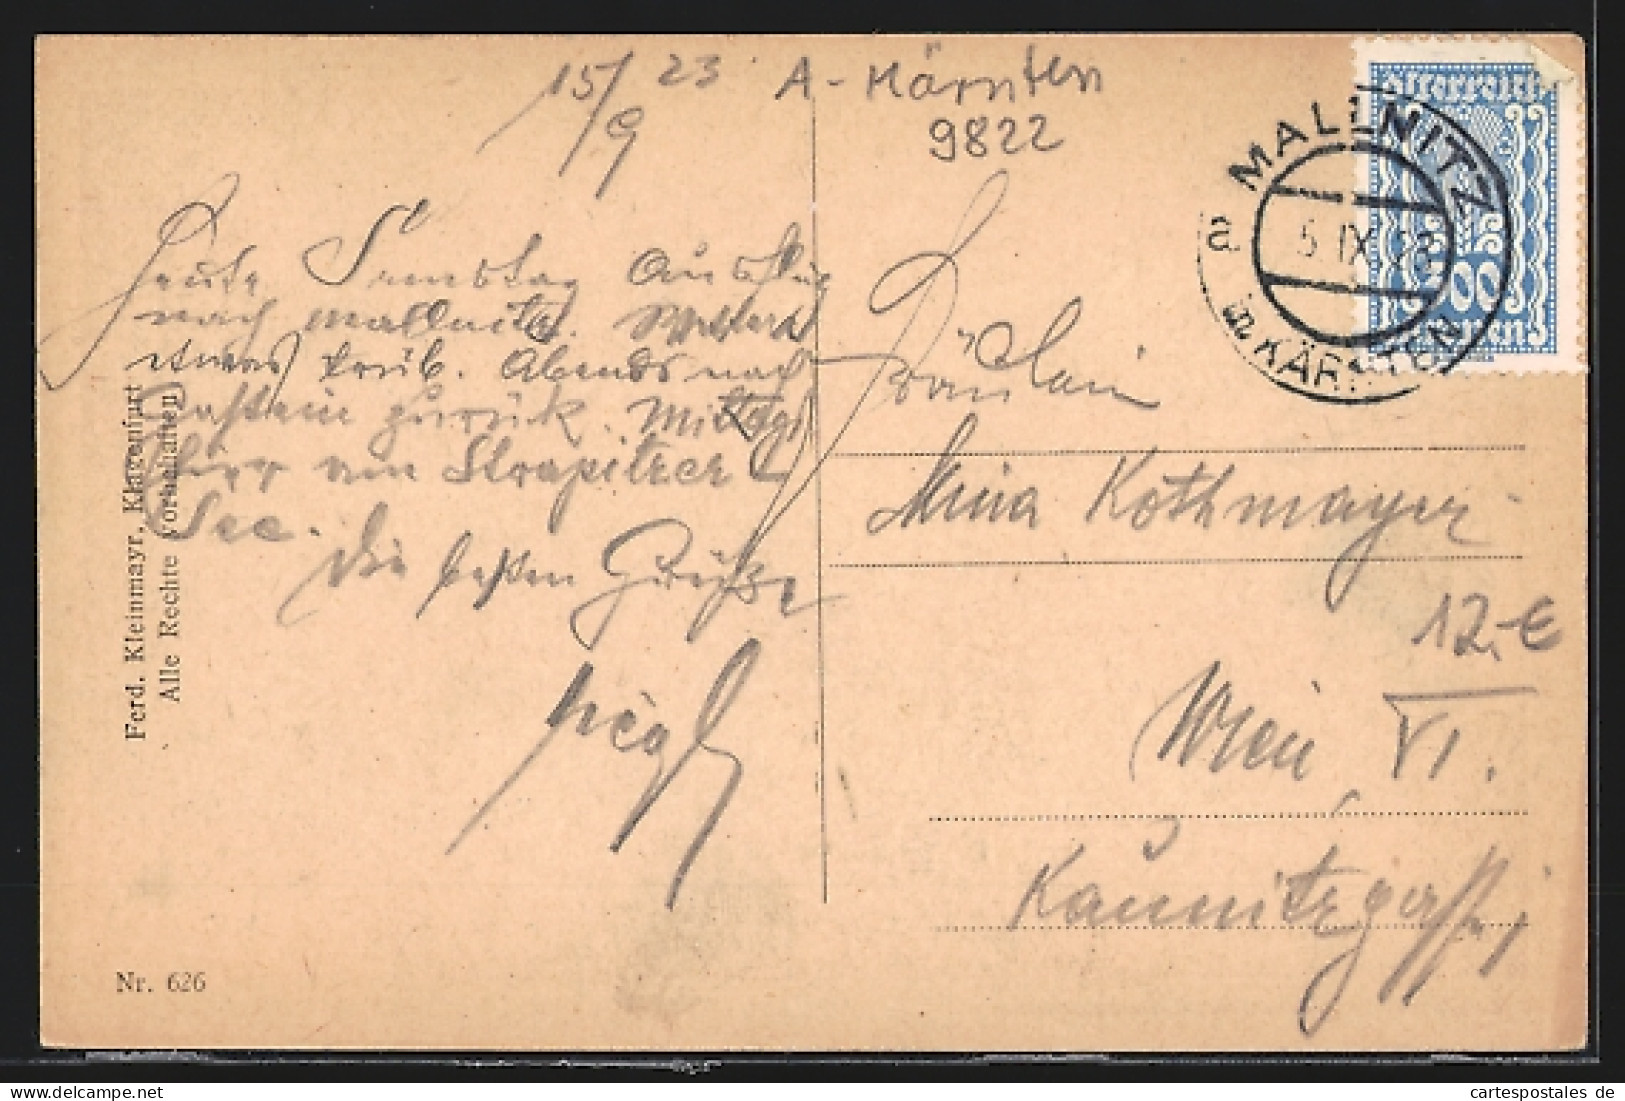 15/9 23
A-Kärnten
9822
Heute Samstag Ausflug
nach Mallnitz. Wetter
etwas trüb. Abends nach
Gastein zurück. Mittags
hier am Strapitzer
See.
Die besten Grüße
Fräulein
Mina Kothmayer
Wien VI.
Kaunitzgasse
12.-€
Österreich
Kronen
MALLNITZ
IX
a
KÄRNTEN
Ferd. Kleinmayr, Klagenfurt
Alle Rechte vorbehalten
Nr. 626
cartespostales de